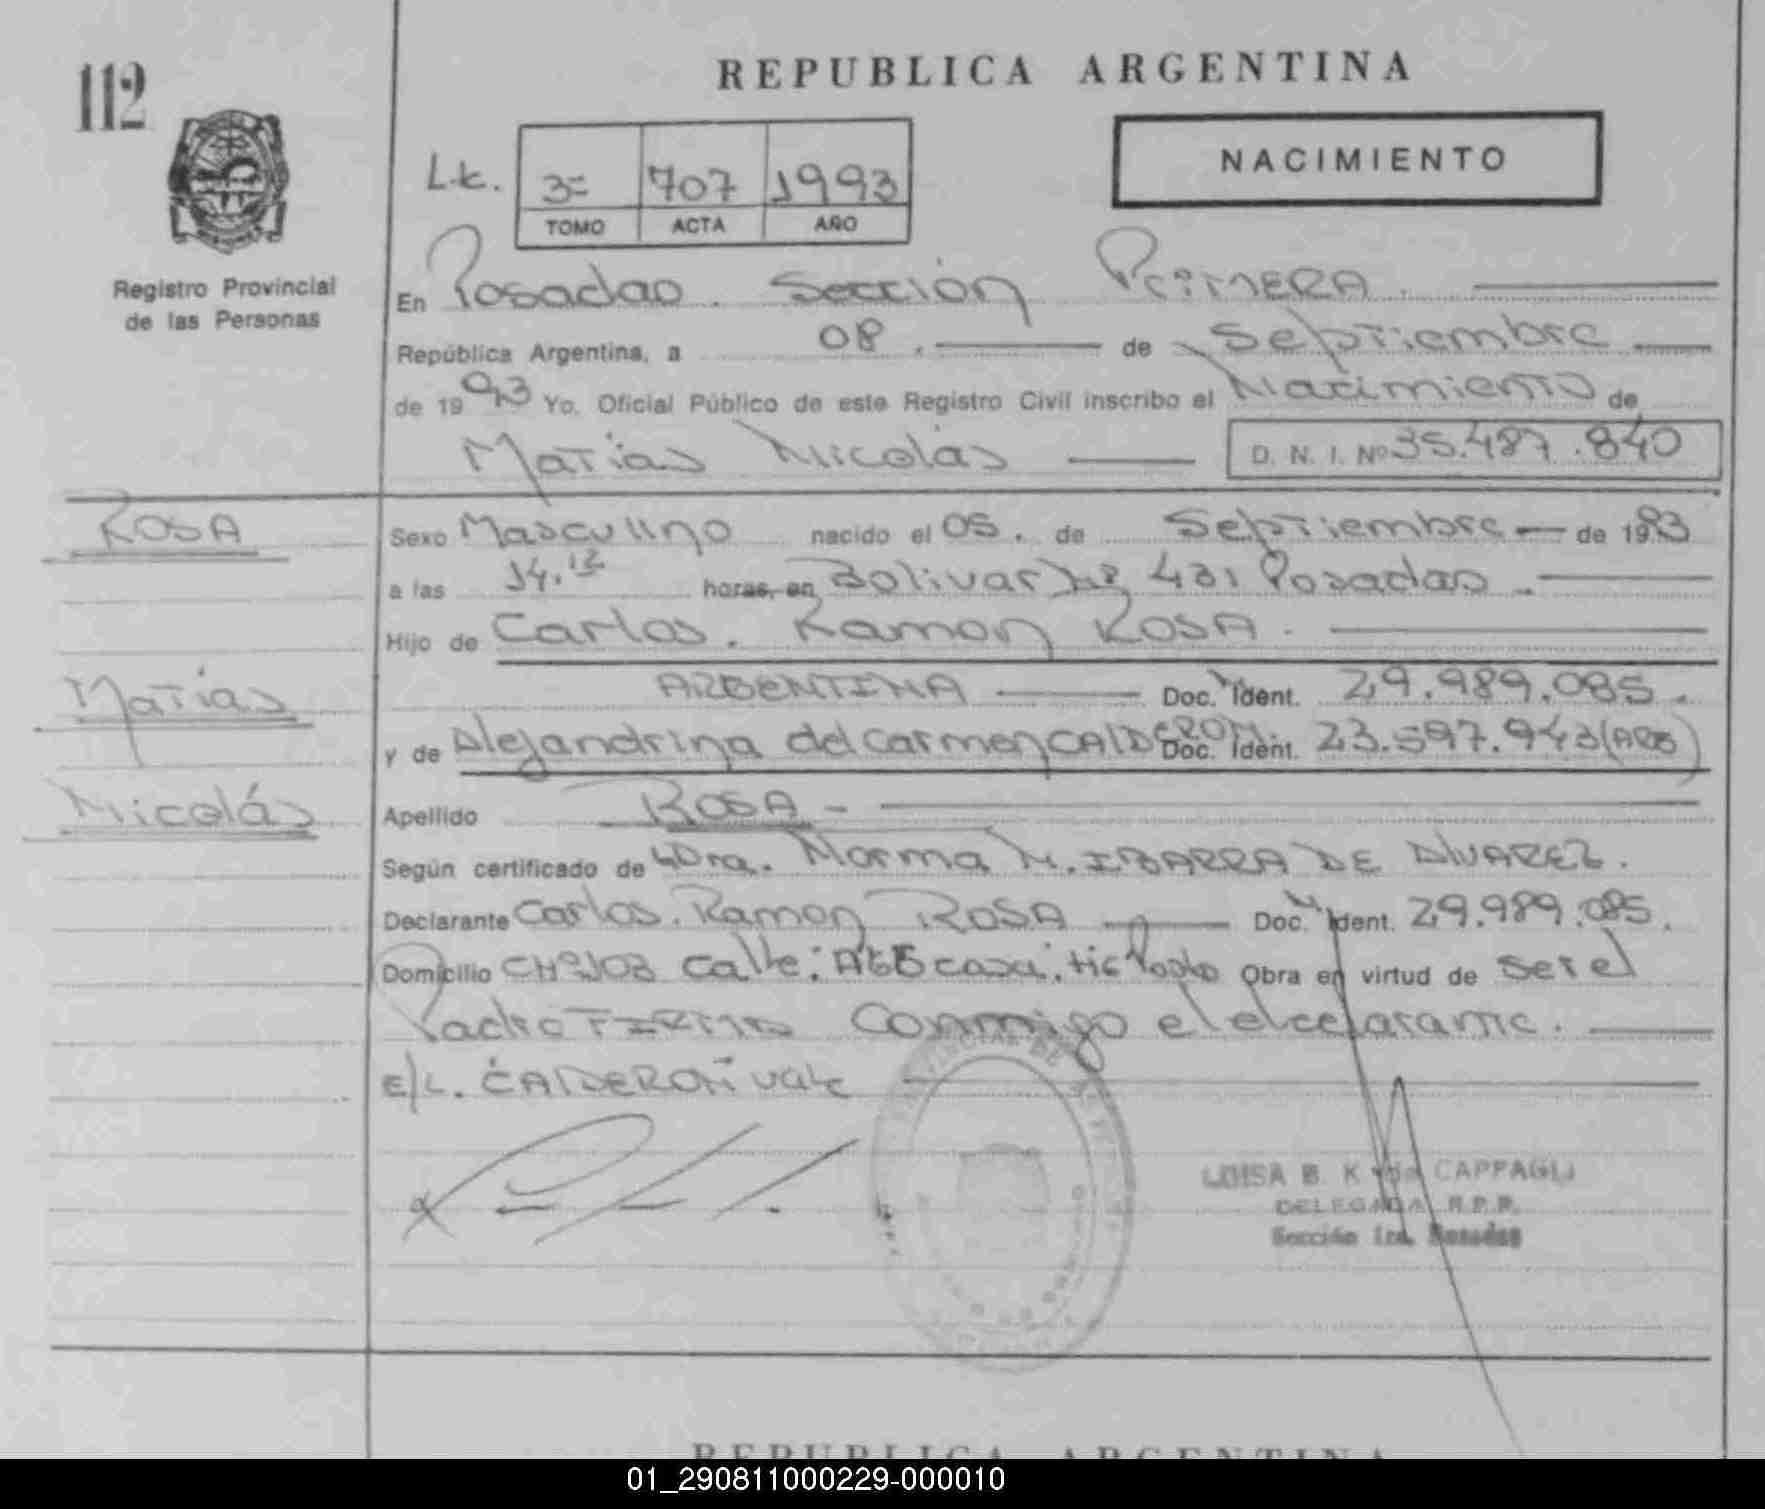 112
REPUBLICA ARGENTINA
NACIMIENTO
Lt. 3= 707 1993
TOMO ACTA AÑO
Registro Provincial
de las Personas
En Posadas. Sección Primera.
República Argentina, a 08. de Septiembre
de 1993 Yo. Oficial Público de este Registro Civil inscribo el Nacimiento de
Matías Nicolás D. N. I. Nº 35.487.840
ROSA
Sexo Masculino nacido el 05. de Septiembre de 1993
a las 14.12 horas, en Bolivar Nº 431 Posadas.
Hijo de Carlos. Ramon ROSA.
Matías
ARGENTINA Doc. Ident. 29.989.085.
y de Alejandrina del Carmen CALDERON. Doc. Ident. 23.597.943 (ARG)
Nicolás
Apellido ROSA -
Según certificado de Dra. Norma M. IBARRA DE ALVAREZ.
Declarante Carlos. Ramon ROSA Doc. Ident. 29.989.085.
Domicilio CHº103 calle: casa: Obra en virtud de ser el
Padre FIRMA Conmigo el declarante.
E/L. CALDERON vale
LUISA B. K de CAPPAGLI
DELEGADA R.P.P.
Sección 1ra. Posadas
REPUBLICA ARGENTINA
01_290811000229-000010